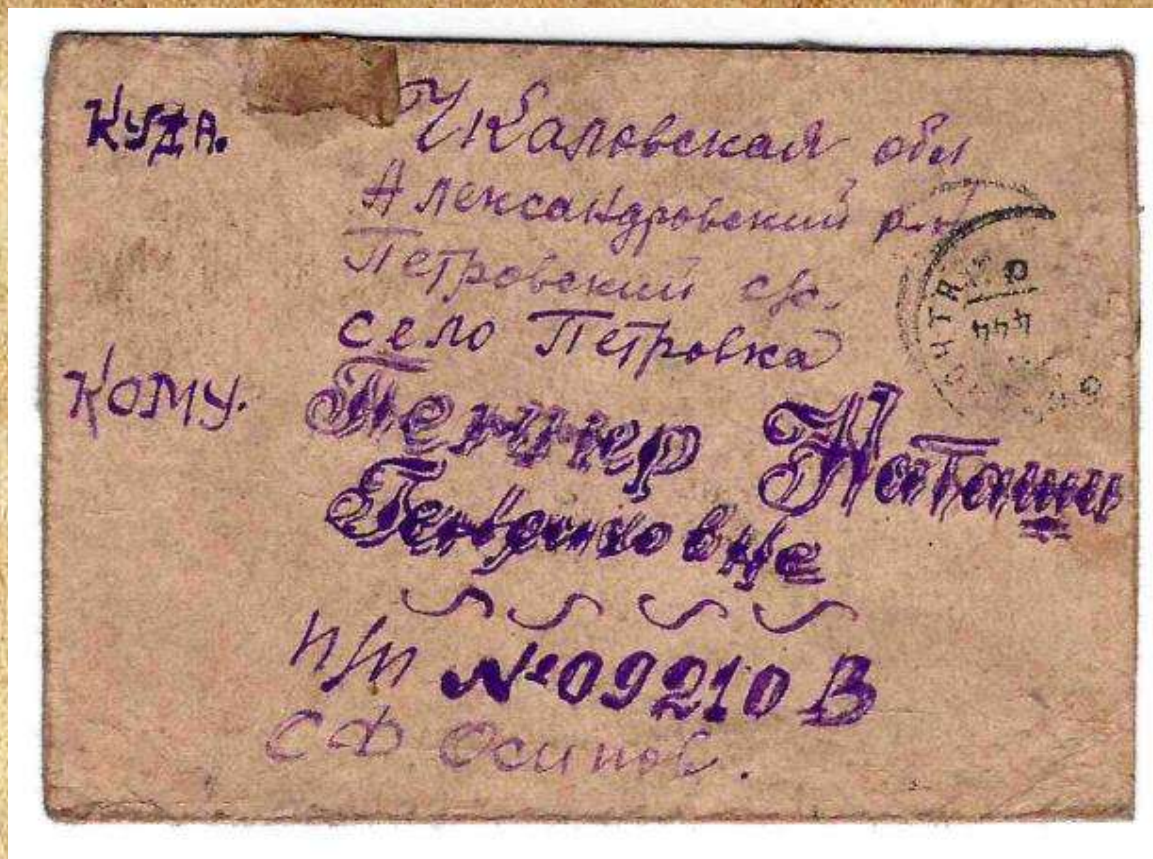 КУДА. Чкаловская обл
Александровский р-н
Петровский с/с.
село Петровка
КОМУ. Наташи
Генриховне
П/П №09210 В
СФ Осипов.
ПОЧТА
44